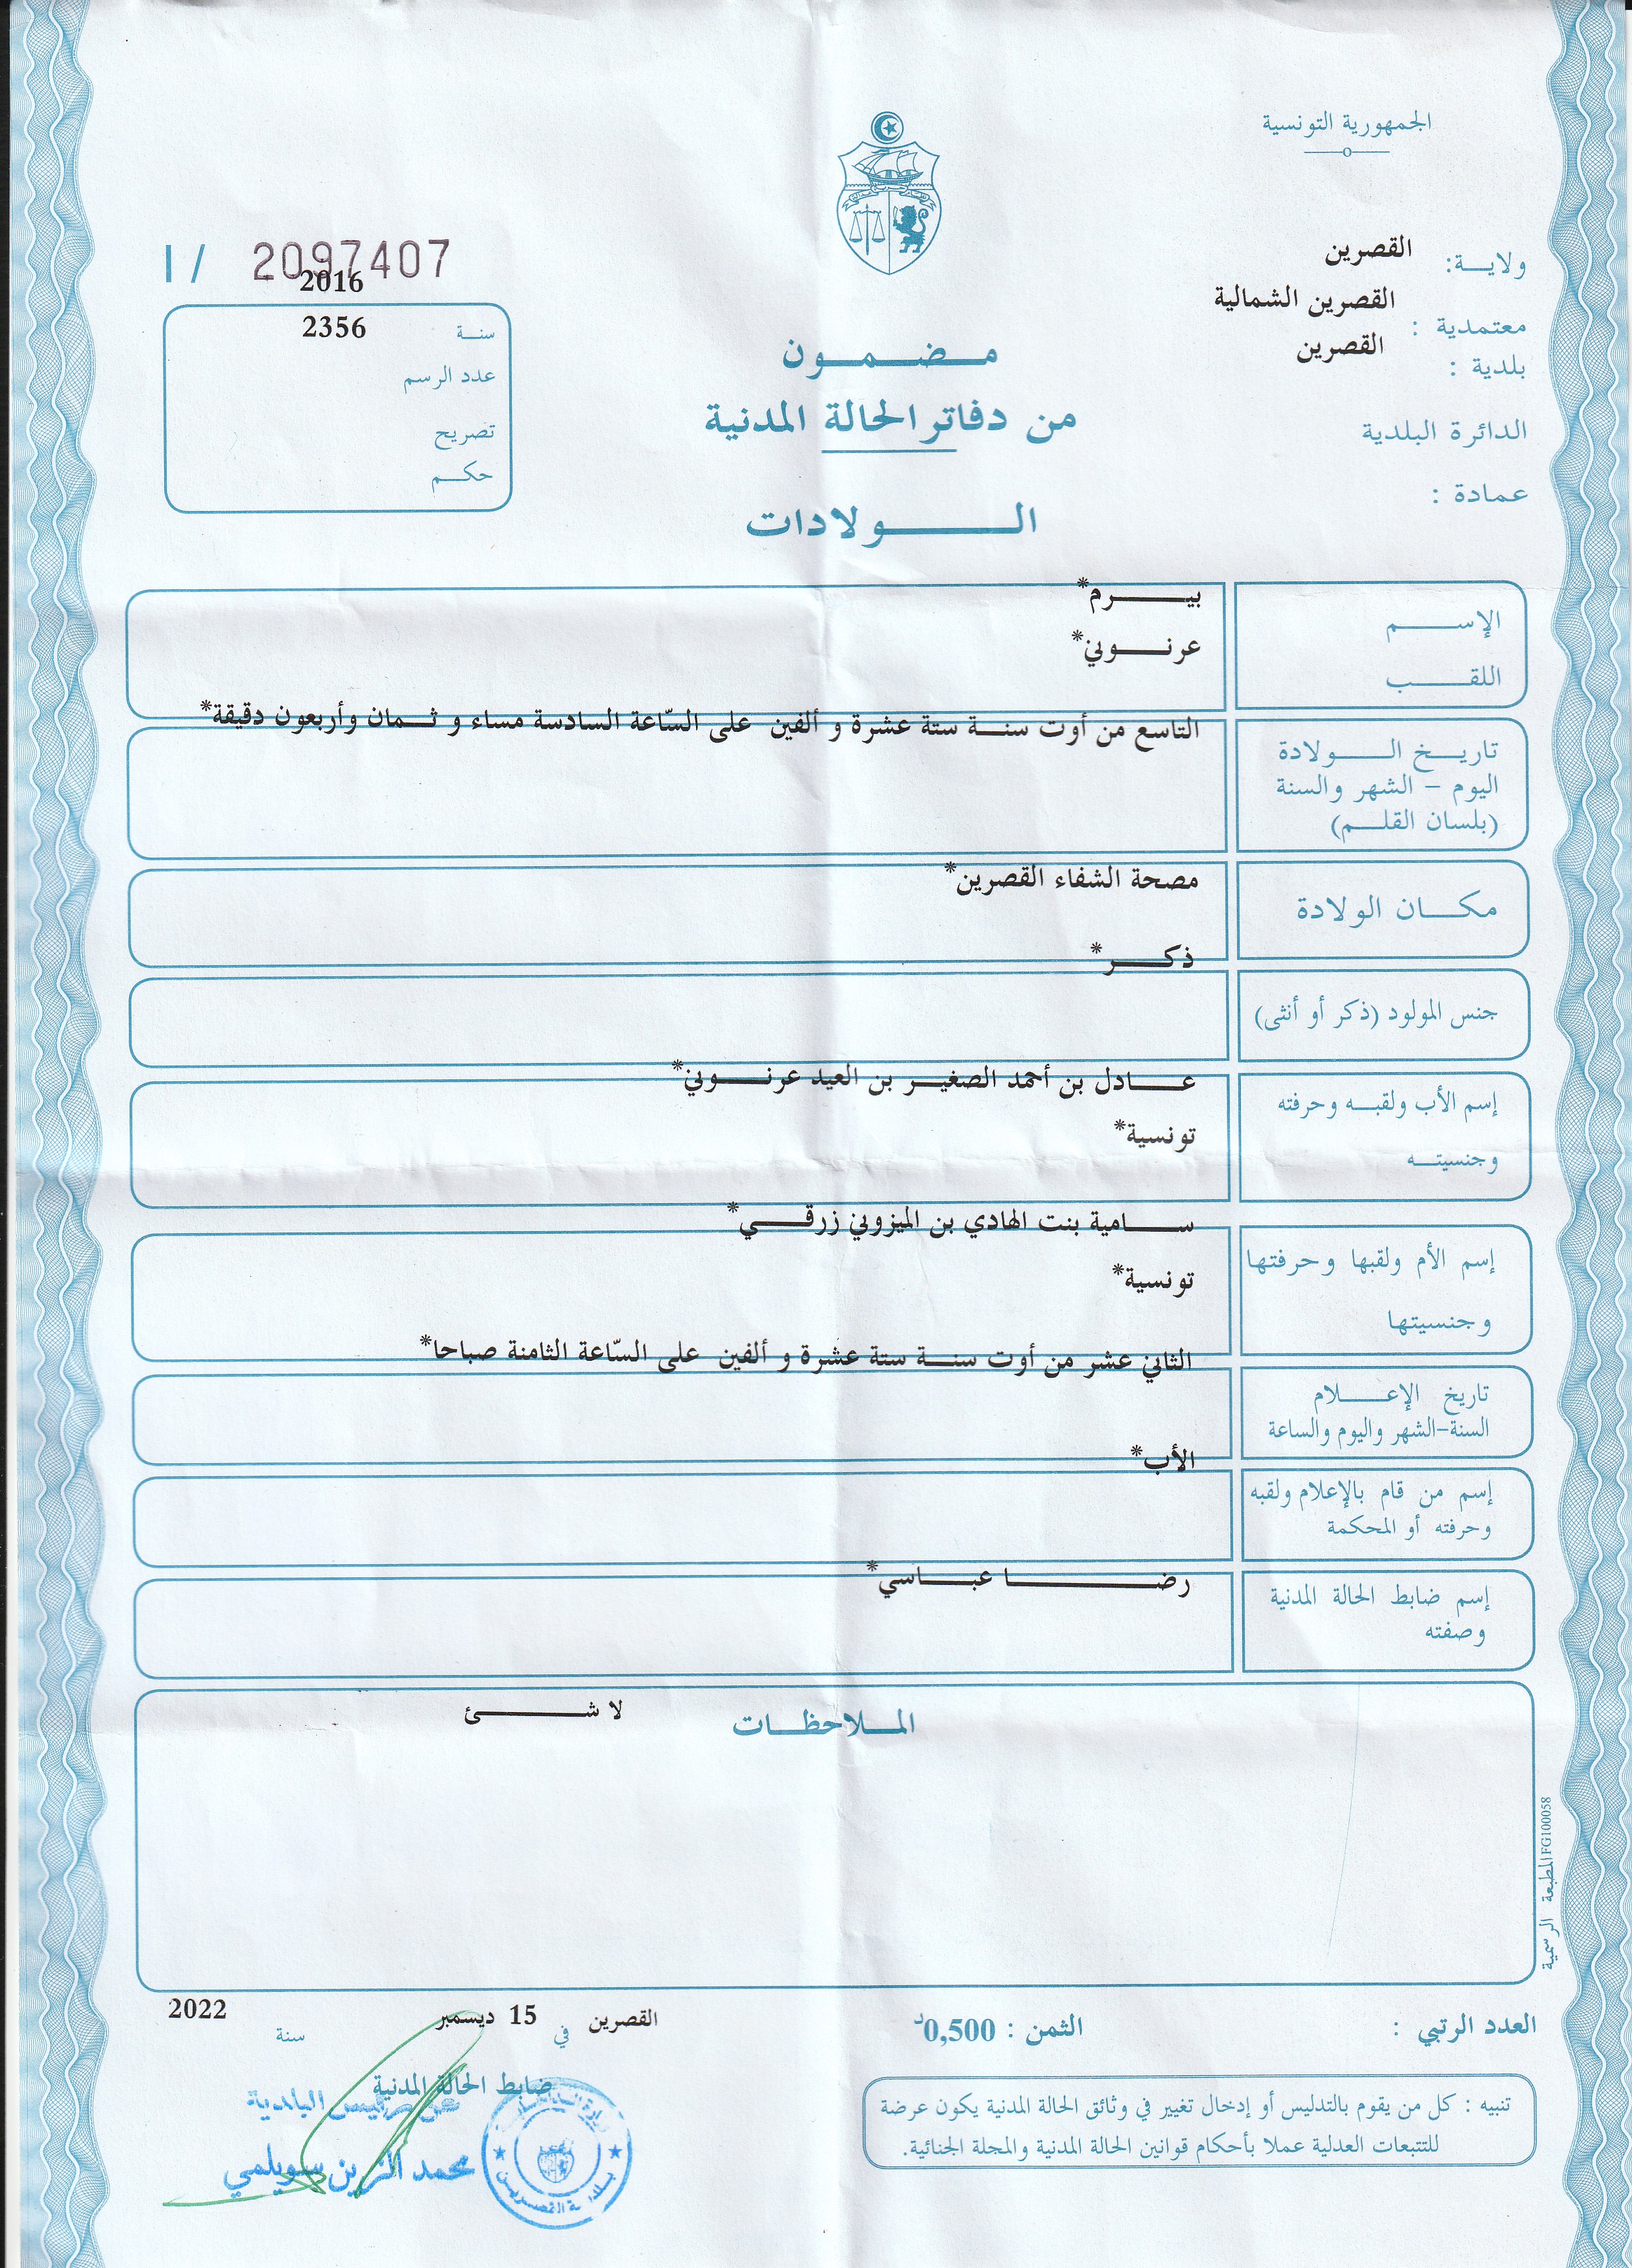 الجمهورية التونسية
ولاية: القصرين
معتمدية : القصرين الشمالية
بلدية : القصرين
الدائرة البلدية
عمادة :
I / 2097407
2016
سنة 2356
عدد الرسم
تصريح
حكم
مضمون
من دفاتر الحالة المدنية
الولادات
الإسم بيرم*
اللقب عرنوني*
تاريخ الولادة التاسع من أوت سنة ستة عشرة و ألفين على السّاعة السادسة مساء و ثمان وأربعون دقيقة*
اليوم - الشهر والسنة
(بلسان القلم)
مكان الولادة مصحة الشفاء القصرين*
جنس المولود (ذكر أو أنثى) ذكر*
إسم الأب ولقبه وحرفته عادل بن أحمد الصغير بن العيد عرنوني*
وجنسيته تونسية*
إسم الأم ولقبها وحرفتها سامية بنت الهادي بن الميزوني زرقي*
وجنسيتها تونسية*
تاريخ الإعلام الثاني عشر من أوت سنة ستة عشرة و ألفين على السّاعة الثامنة صباحا*
السنة-الشهر واليوم والساعة
إسم من قام بالإعلام ولقبه الأب*
وحرفته أو المحكمة
إسم ضابط الحالة المدنية رضا عباسي*
وصفته
الملاحظات لا شئ
المطبعة الرسمية FG100058
العدد الرتبي :
الثمن : 0,500د
القصرين في 15 ديسمبر سنة 2022
ضابط الحالة المدنية
عن رئيس البلدية
محمد الزين سويلمي
بلدية القصرين
تنبيه : كل من يقوم بالتدليس أو إدخال تغيير في وثائق الحالة المدنية يكون عرضة
للتتبعات العدلية عملا بأحكام قوانين الحالة المدنية والمجلة الجنائية.